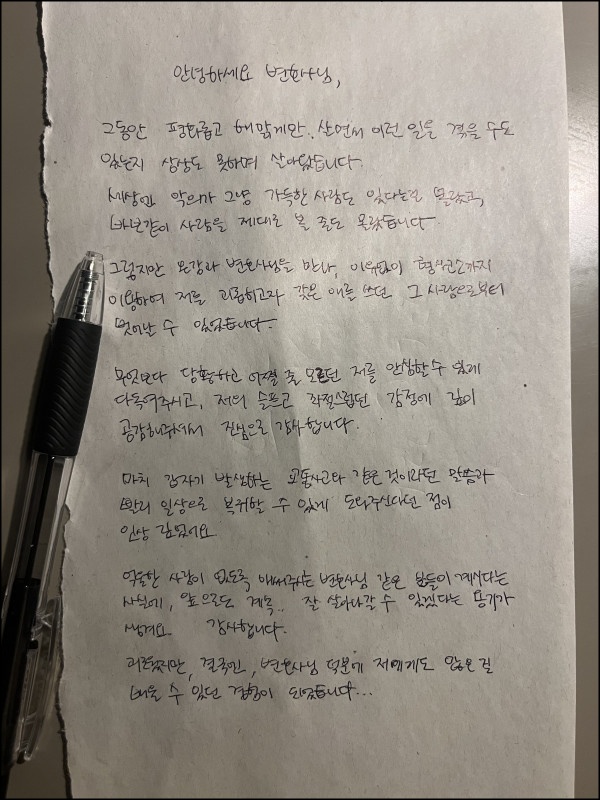 안녕하세요 변호사님,
그동안 평화롭고 해맑게만.. 살면서 이런 일을 겪을 수도
있는지 상상도 못하며 살아왔습니다.
세상엔 악의가 그냥 가득한 사람도 있다는걸 몰랐고,
바보같이 사람을 제대로 볼 줄도 몰랐습니다.
그렇지만 변호사님을 만나, 이유없이 형사고소까지
이용하여 저를 괴롭히고자 갖은 애를 쓰던 그 사람으로부터
벗어날 수 있었습니다.
무엇보다 당황하고 어쩔 줄 모르던 저를 안심할 수 있게
다독여주시고, 저의 슬프고 좌절스럽던 감정에 깊이
공감해주셔서 진심으로 감사합니다.
마치 갑자기 발생하는 교통사고와 같은 것이라던 말씀과
빨리 일상으로 복귀할 수 있게 도와주신다던 점이
인상 깊었어요
억울한 사람이 없도록 애써주시는 변호사님 같은 분들이 계시다는
사실에, 앞으로도 계속.. 잘 살아나갈 수 있겠다는 용기가
생겨요 감사합니다.
괴로웠지만, 결국엔, 변호사님 덕분에 저에게도 많은 걸
배울 수 있던 경험이 되었습니다...